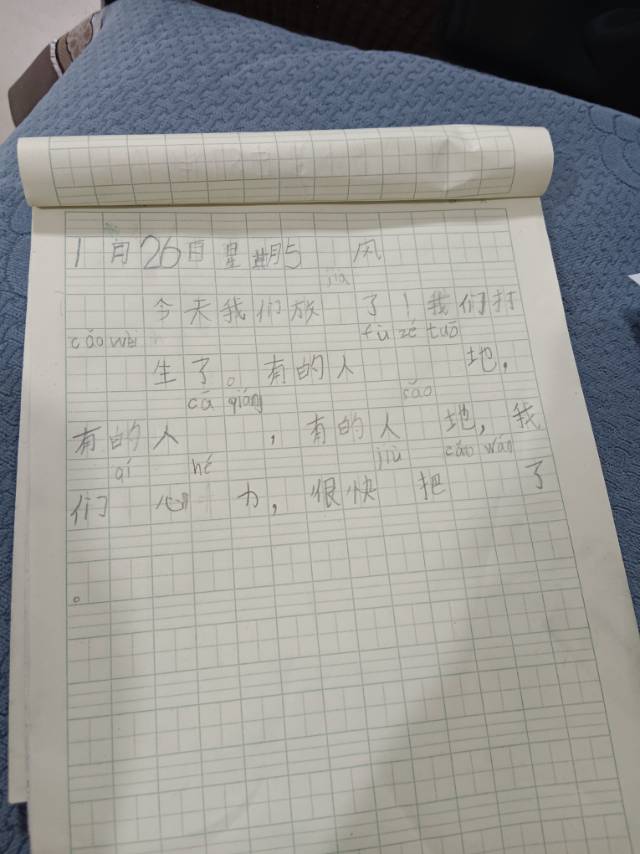 1月26日星期5 风
jià
今天我们放 了！我们打
cǎo wèi fù zé tuō
生了。有的人 地，
cā qiáng sǎo
有的人 ，有的人 地，我
qí hé jiù cǎo wǎo
们 心 力，很快 把 了
。